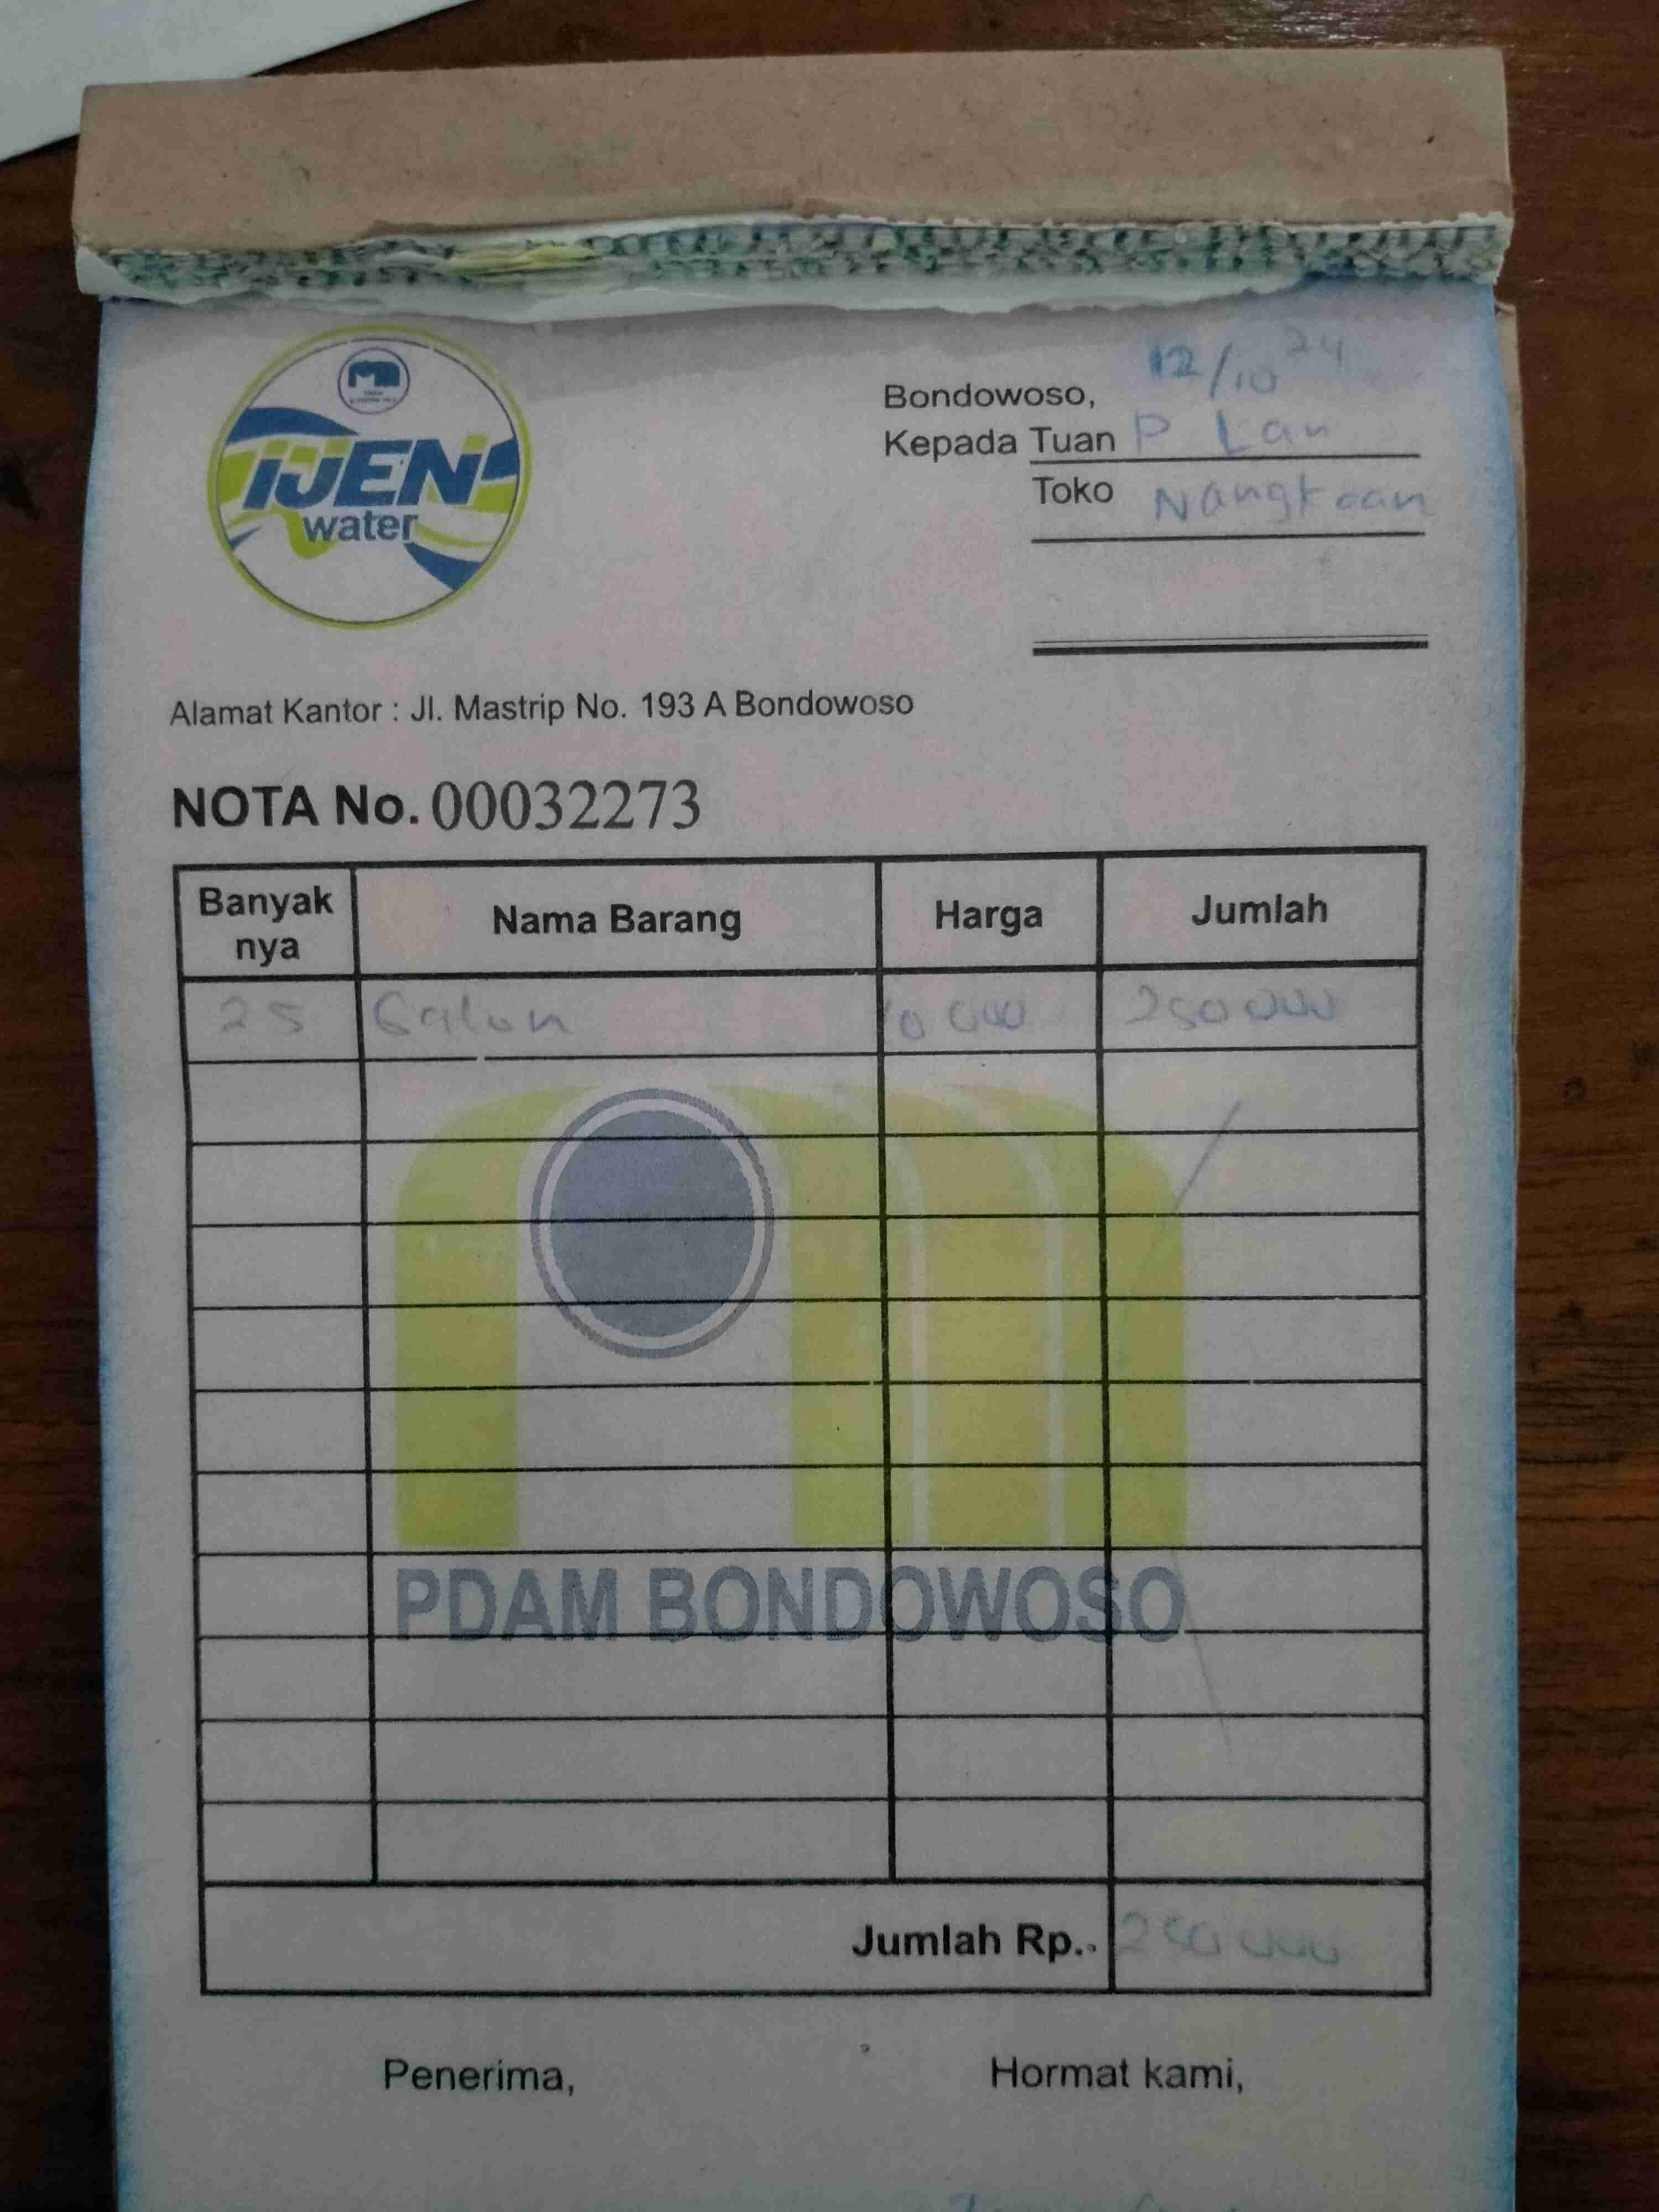 IJEN
water
Bondowoso, 12/10 24
Kepada Tuan P Lan
Toko Nangkaan
Alamat Kantor : Jl. Mastrip No. 193 A Bondowoso
NOTA No. 00032273
Banyak nya Nama Barang Harga Jumlah
25 Galon 10 000 250 000
PDAM BONDOWOSO
Jumlah Rp.. 250 000
Penerima, Hormat kami,